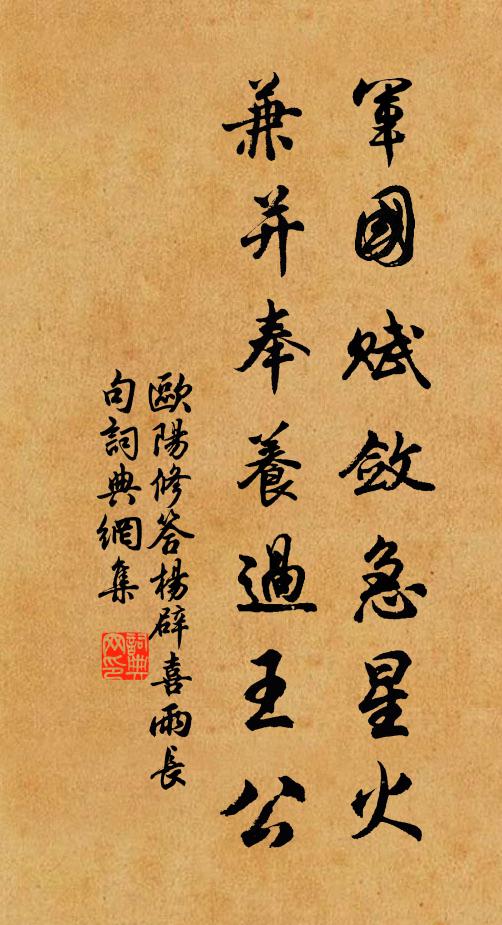 軍國賦斂急星火
兼并奉養過王公
歐陽修答楊辟喜雨長
句詞典網集
詞典網印